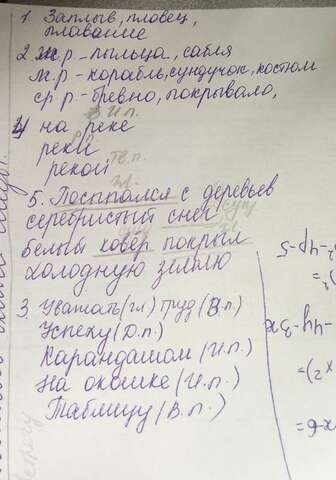 1. Заплыв, пловец,
плавание
2. ж.р. – пыльца, сабля
м.р – корабль, сундучок, костюм
ср р. – бревно, покрывало,
И.п.
4 на реке
Р.п
реки
тв.п.
рекой
гл.
5. Посыпался с деревьев
серебристый снег
сущ
Белый ковёр покрыл
холодную землю
3 Уважать (гл) труд (В.п)
Успеху (Д.п.)
Карандашом (И.п.)
на окошке (И.п.)
Таблицу (В.п.)
-4p-5
-4y-3x